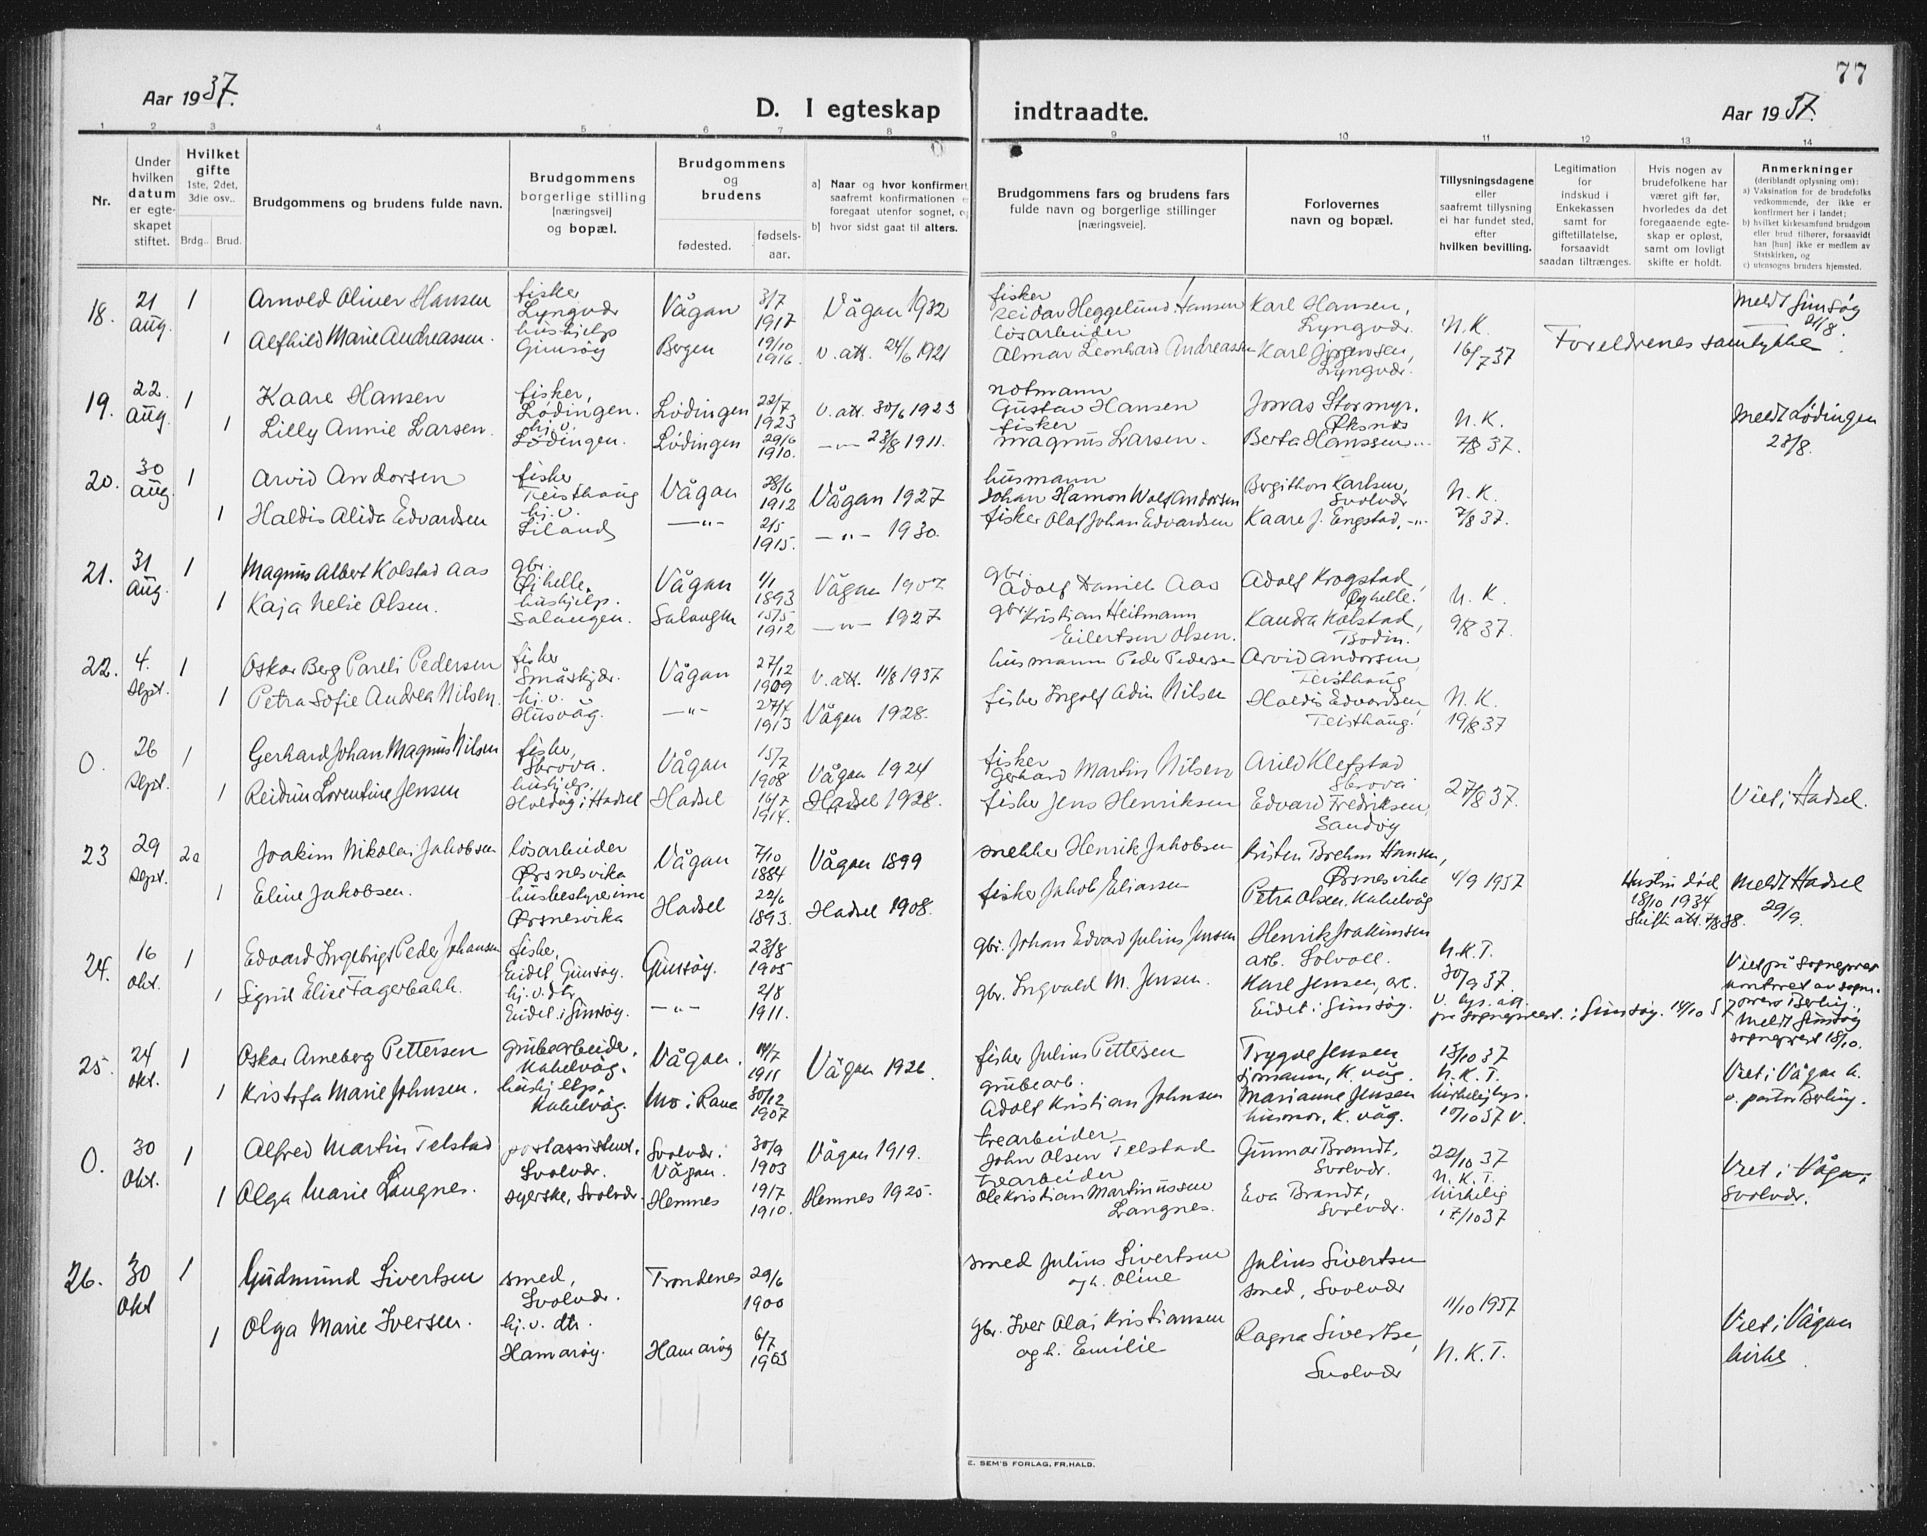 77
Aar 1937.
D. I egteskap indtraadte.
Aar 1937.
1 2 3 4 5 6 7 8 9 10 11 12 13 14
Nr.
Under hvilken datum er egteskapet stiftet.
Hvilket gifte 1ste, 2det, 3die osv..
Brdg.. Brud.
Brudgommens og brudens fulde navn.
Brudgommens borgerlige stilling [næringsvei] og bopæl.
Brudgommens og brudens
fødested.
fødsels-aar.
a) Naar og hvor konfirmert, saafremt konfirmationen
foregaat utenfor sognet,
b) hvor sidst gaat til alters.
Brudgommens fars og brudens fars fulde navn og borgerlige stillinger [næringsveie].
Forlovernes navn og bopæl.
Tillysningsdagene eller saafremt tillysning ei har fundet sted, efter hvilken bevilling.
Legitimation for indskud i Enkekassen samt for giftetillatelse, forsaavidt saadan tiltrænges.
Hvis nogen av brudefolkene har været gift før, hvorledes da det foregaaende egteskap er opløst, samt om lovligt skifte er holdt.
Anmerkninger (deriblandt oplysning om): a) Vaksination for de brudefolks vedkommende, der ikke er konfirmert her i landet; b) hvilket kirkesamfund brudgom eller brud tilhører, forsaavidt han [hun] ikke er medlem av Statskirken, og c) utensogns bruders hjemsted.
18. 21 aug. 1 Arnold Oliver Hansen fisker Lyngvær Vågan 3/7 1917 Vågan 1932 fisker Reidar Heggelund Hansen Karl Hansen, Lyngvær. N.K. 16/7 37 Foreldrenes samtykke. Meldt Gimsøy 21/8.
1 Alfhild Marie Andreassen. hushjelp Gimsøy Bergen 19/10 1916. v. att. 24/6 1921 løsarbeider Almar Leonhard Andreassen Karl Jørgensen, Lyngvær.
19. 22. aug. 1 Kaare Hansen fisker, Lødingen. Lødingen 22/7 1923 v. att. 30/6 1923 notmann Gustav Hansen Jonas Stormyr. Øksnes N.K. 7/8 37. Meldt Lødingen 23/8.
1 Lilly Annie Larsen. hj.v. Lødingen. Lødingen 29/6 1910. —"— 23/8 1911. fisker Magnus Larsen. Berta Hanssen —"—
20. 30 aug. 1 Arvid Andorsen fisker Teisthaug Vågan 28/6 1912 Vågan 1927 husmann Johan Hamon Wolf Andorsen Bergithon Karlsen, Svolvær N.K. 7/8 37.
1 Haldis Alida Edvardsen hj.v. Liland —"— 2/5 1915. —"— 1930. fisker Olaf Johan Edvardsen Kaare J. Engstad, —"—
21. 31 aug. 1 Magnus Albert Kolstad Aas gbr. Øihelle. Vågan 1/1 1893 Vågan 1907 gbr. Adolf Daniel Aas Adolf Krogstad, Øyhelle. N.K. 9/8 37.
1 Kaja Nelie Olsen. hushjelp. Salangen. Salangen 15/5 1912 —"— 1927 gbr. Kristian Heitmann Eilertsen Olsen. Kandra Kolstad, Bodin.
22. 4. sept. 1 Oskar Berg Pareli Pedersen fisker Småskjær. Vågan 27/12 1909 v. att. 11/8 1937 husmann Peder Pedersen Arvid Andorsen, Teisthaug N.K. 19/8 37
1 Petra Sofie Andrea Nilsen. hj.v. Husvåg. —"— 27/4 1913 Vågan 1928. fisker Ingolf Adin Nilsen Haldis Edvardsen, Teisthaug.
0. 26 sept. 1 Gerhard Johan Magnus Nilsen fisker, Skrova. Vågan 15/7 1908 Vågan 1924 fisker Gerhard Martin Nilsen Arild Klefstad Skrova 27/8 37. Viet i Hadsel.
1 Reidun Lorentine Jensen hushjelp. Holdøy i Hadsel Hadsel 16/7 1914. Hadsel 1928. fisker Jens Henriksen Edvard Fredriksen, Sandøy
23 29 sept. 2a Joakim Nikolai Jakobsen løsarbeider Ørsnesvika Vågan 7/10 1884 Vågan 1899 snekker Henrik Jakobsen Kristen Brehm Hansen, Ørsnesvika 4/9 1937 Hustru død 18/10 1934 Skifte att. 4/8 38. Meldt Hadsel 29/9.
1 Eline Jakobsen. husbestyrerinne Ørsnesvika Hadsel 22/6 1893. Hadsel 1908. fisker Jakob Eliassen Petra Olsen, Kabelvåg
24. 16 okt. 1 Edvard Ingebrigt Peder Johansen fisker, Eidet Gimsøy. Gimsøy. 23/8 1905 gbr. Johan Edvard Julius Jensen Henrik Joakimsen arb. Solvoll. N.K.T. 30/9 37. Viet på sogneprestkontoret av sogneprest Berling. Meldt Gimsøy sogneprest 18/10.
1 Sigrid Elise Fagerbakk. hj.v. dtr. Eidet i Gimsøy. —"— 2/8 1911. gbr. Ingvald M. Jensen. Karl Jensen, Eidet i Gimsøy. v. lys. att. fra sogneprest. i Gimsøy. 14/10 37
25. 24 okt. 1 Oskar Arneberg Pettersen grubearbeider, Kabelvåg. Vågan. 14/7 1911 Vågan 1926. fisker Julius Pettersen Trygve Jensen sjømann, K.våg. 13/10 37 N.K.T. Viet i Vågan k. v. pastor Berling.
1 Kristofa Marie Johnsen. hushjelp, Kabelvåg. Mo i Rana 30/12 1907 grubearb. Adolf Kristian Johnsen Marianne Jensen husmor, K.våg. kirkelig lys. 10/10 37 v.
0. 30 okt. 1 Alfred Martin Telstad postassistent, Svolvær. Svolvær i Vågan. 30/9 1903 Vågan 1919. trearbeider John Olsen Telstad Gunnar Brandt, Svolvær. 22/10 37 N.K.T. Viet i Vågan, Svolvær.
1 Olga Marie Langnes. syerske, Svolvær. Hemnes 19/7 1910. Hemnes 1925. trearbeider Ole Kristian Martinussen Langnes. Eva Brandt, Svolvær. kirkelig 17/10 37
26. 30 okt 1 Gudmund Sivertsen smed, Svolvær. Trondenes 29/6 1900 smed Julius Sivertsen og h. Oline Julius Sivertsen smed, Svolvær 11/10 1937 Viet i Vågan kirke
1 Olga Marie Iversen. hj.v. dtr. Hamarøy. Hamarøy 6/7 1903 gbr. Iver Olai Kristiansen og h. Emilie Ragna Sivertsen, Svolvær N.K.T.
E. SEM'S FORLAG, FR.HALD.